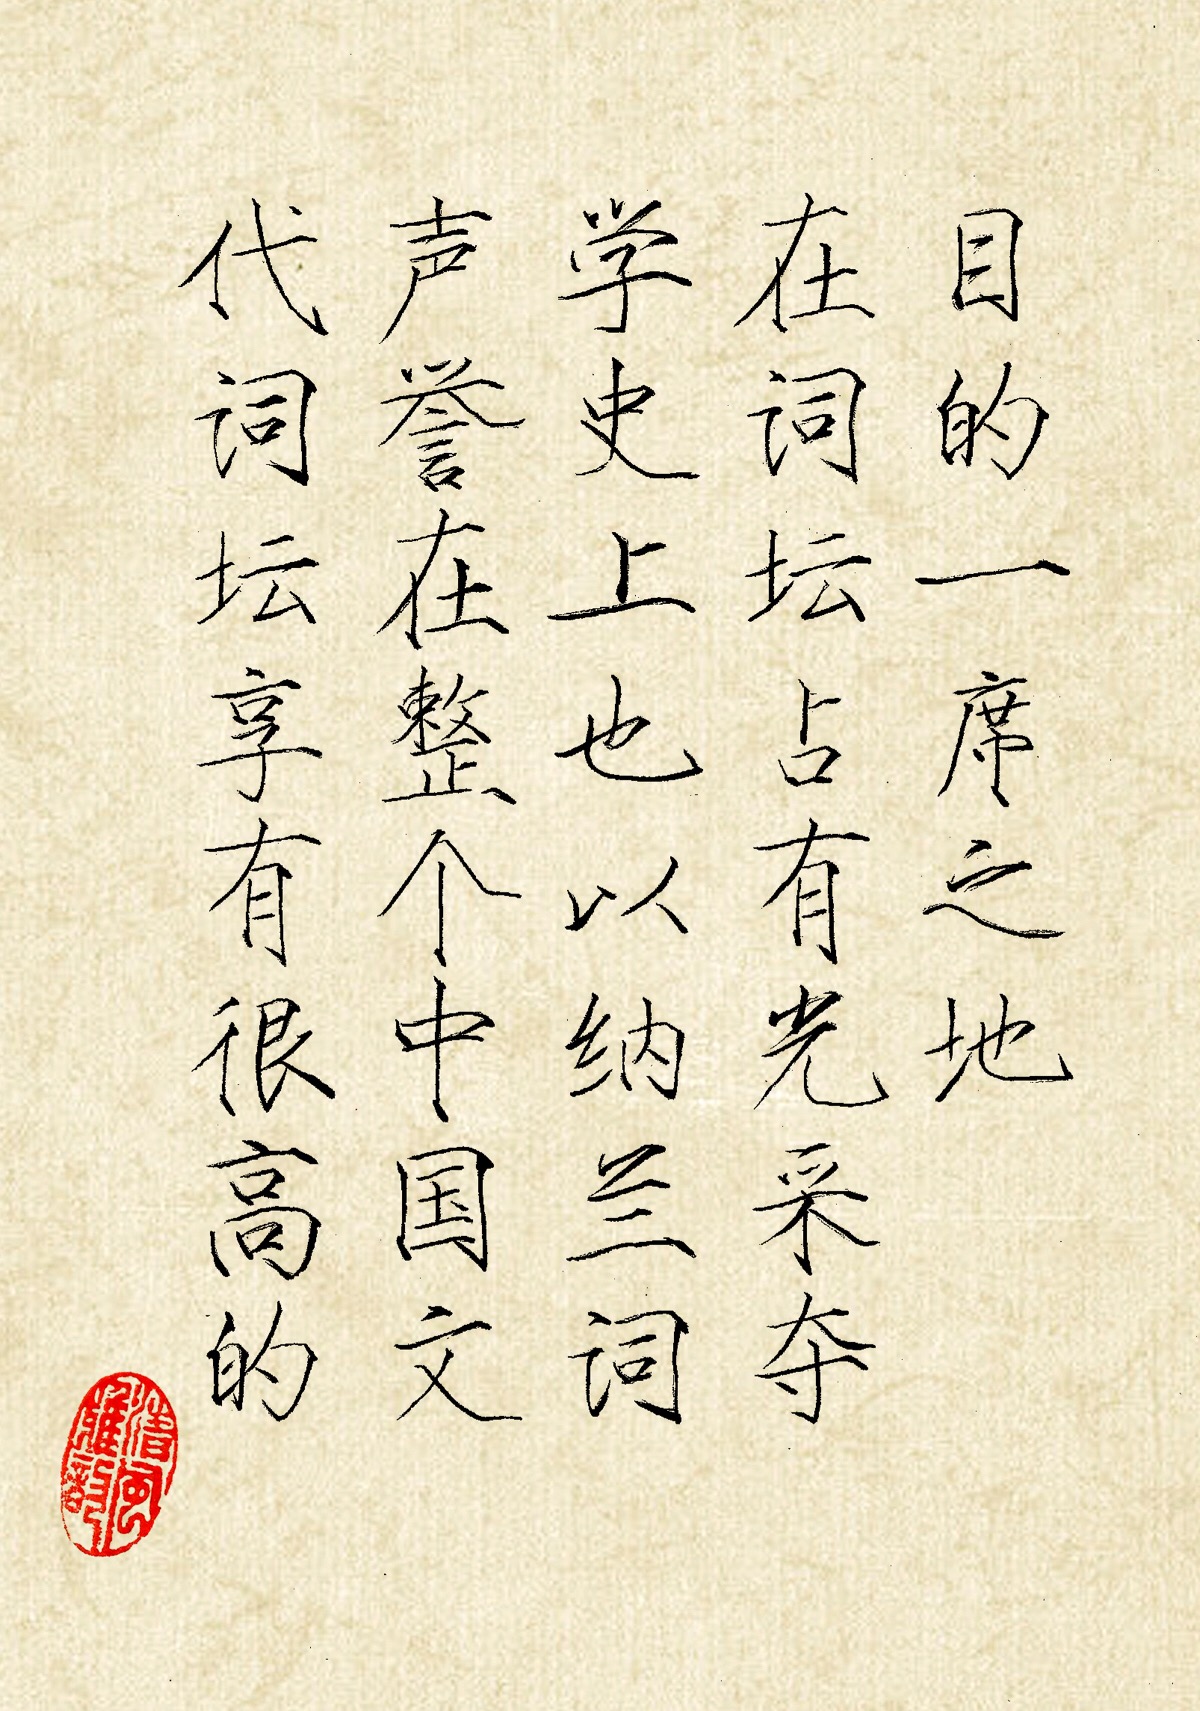 代词坛享有很高的
声誉在整个中国文
学史上也以纳兰词
在词坛占有光采夺
目的一席之地